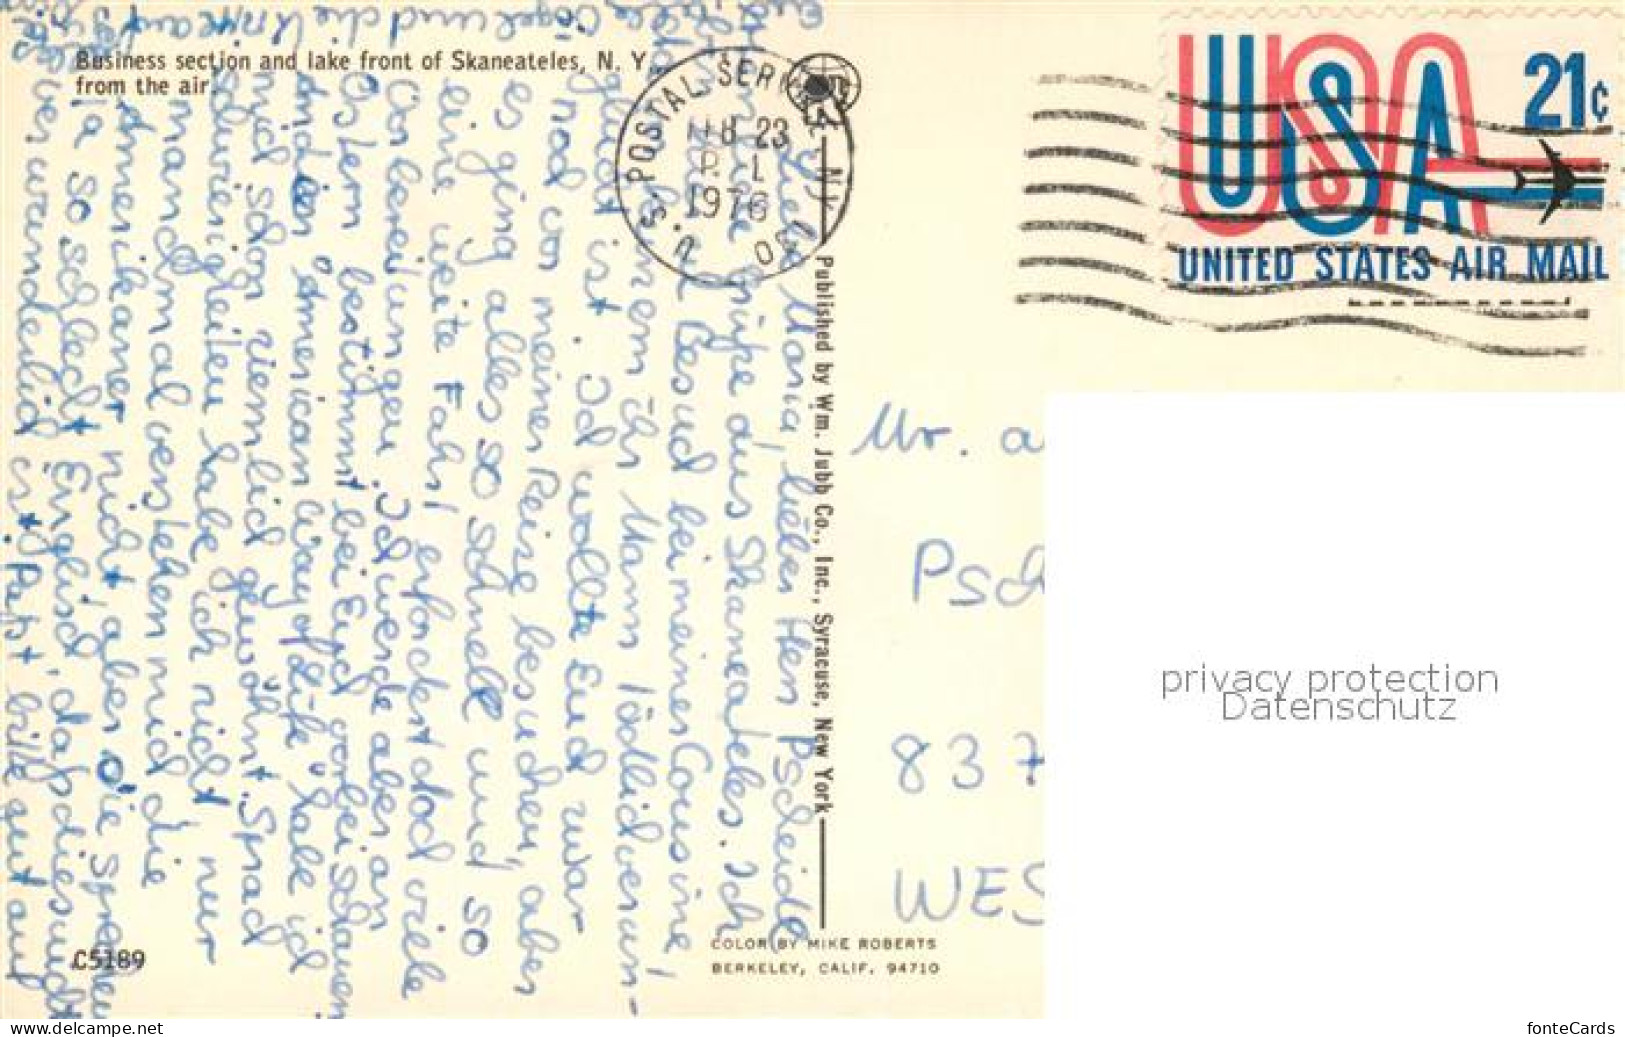 Business section and lake front of Skaneateles, N. Y.,
from the air.
U.S. POSTAL SERVICE N.Y.
23
1976
USA
21c
UNITED STATES AIR MAIL
Published by Wm. Jubb Co., Inc., Syracuse, New York
Liebe Maria, lieber Herr Pscheidl
Grüße aus Skaneateles. Ich
Besuch bei meiner Cousine
ihr Mann tödlich verun-
glückt ist. Ich wollte Euch zwar
noch vor meiner Reise besuchen, aber
es ging alles so schnell und so
eine weite Fahrt erfordert doch viele
Vorbereitungen. Ich werde aber an
Ostern bestimmt bei Euch vorbeischauen
An den "American Way of Life" habe ich
mich schon ziemlich gewöhnt. Sprach
schwierigkeiten habe ich nicht nur
manchmal verstehen mich die
Amerikaner nicht, aber die sprechen
ja so schlecht Englisch, daß dies nicht
verwunderlich ist. Paßt bitte gut auf
und die
Mr. a
Psch
837
WES
C5189
COLOR BY MIKE ROBERTS
BERKELEY, CALIF. 94710
privacy protection
Datenschutz
www.delcampe.net
fonteCards